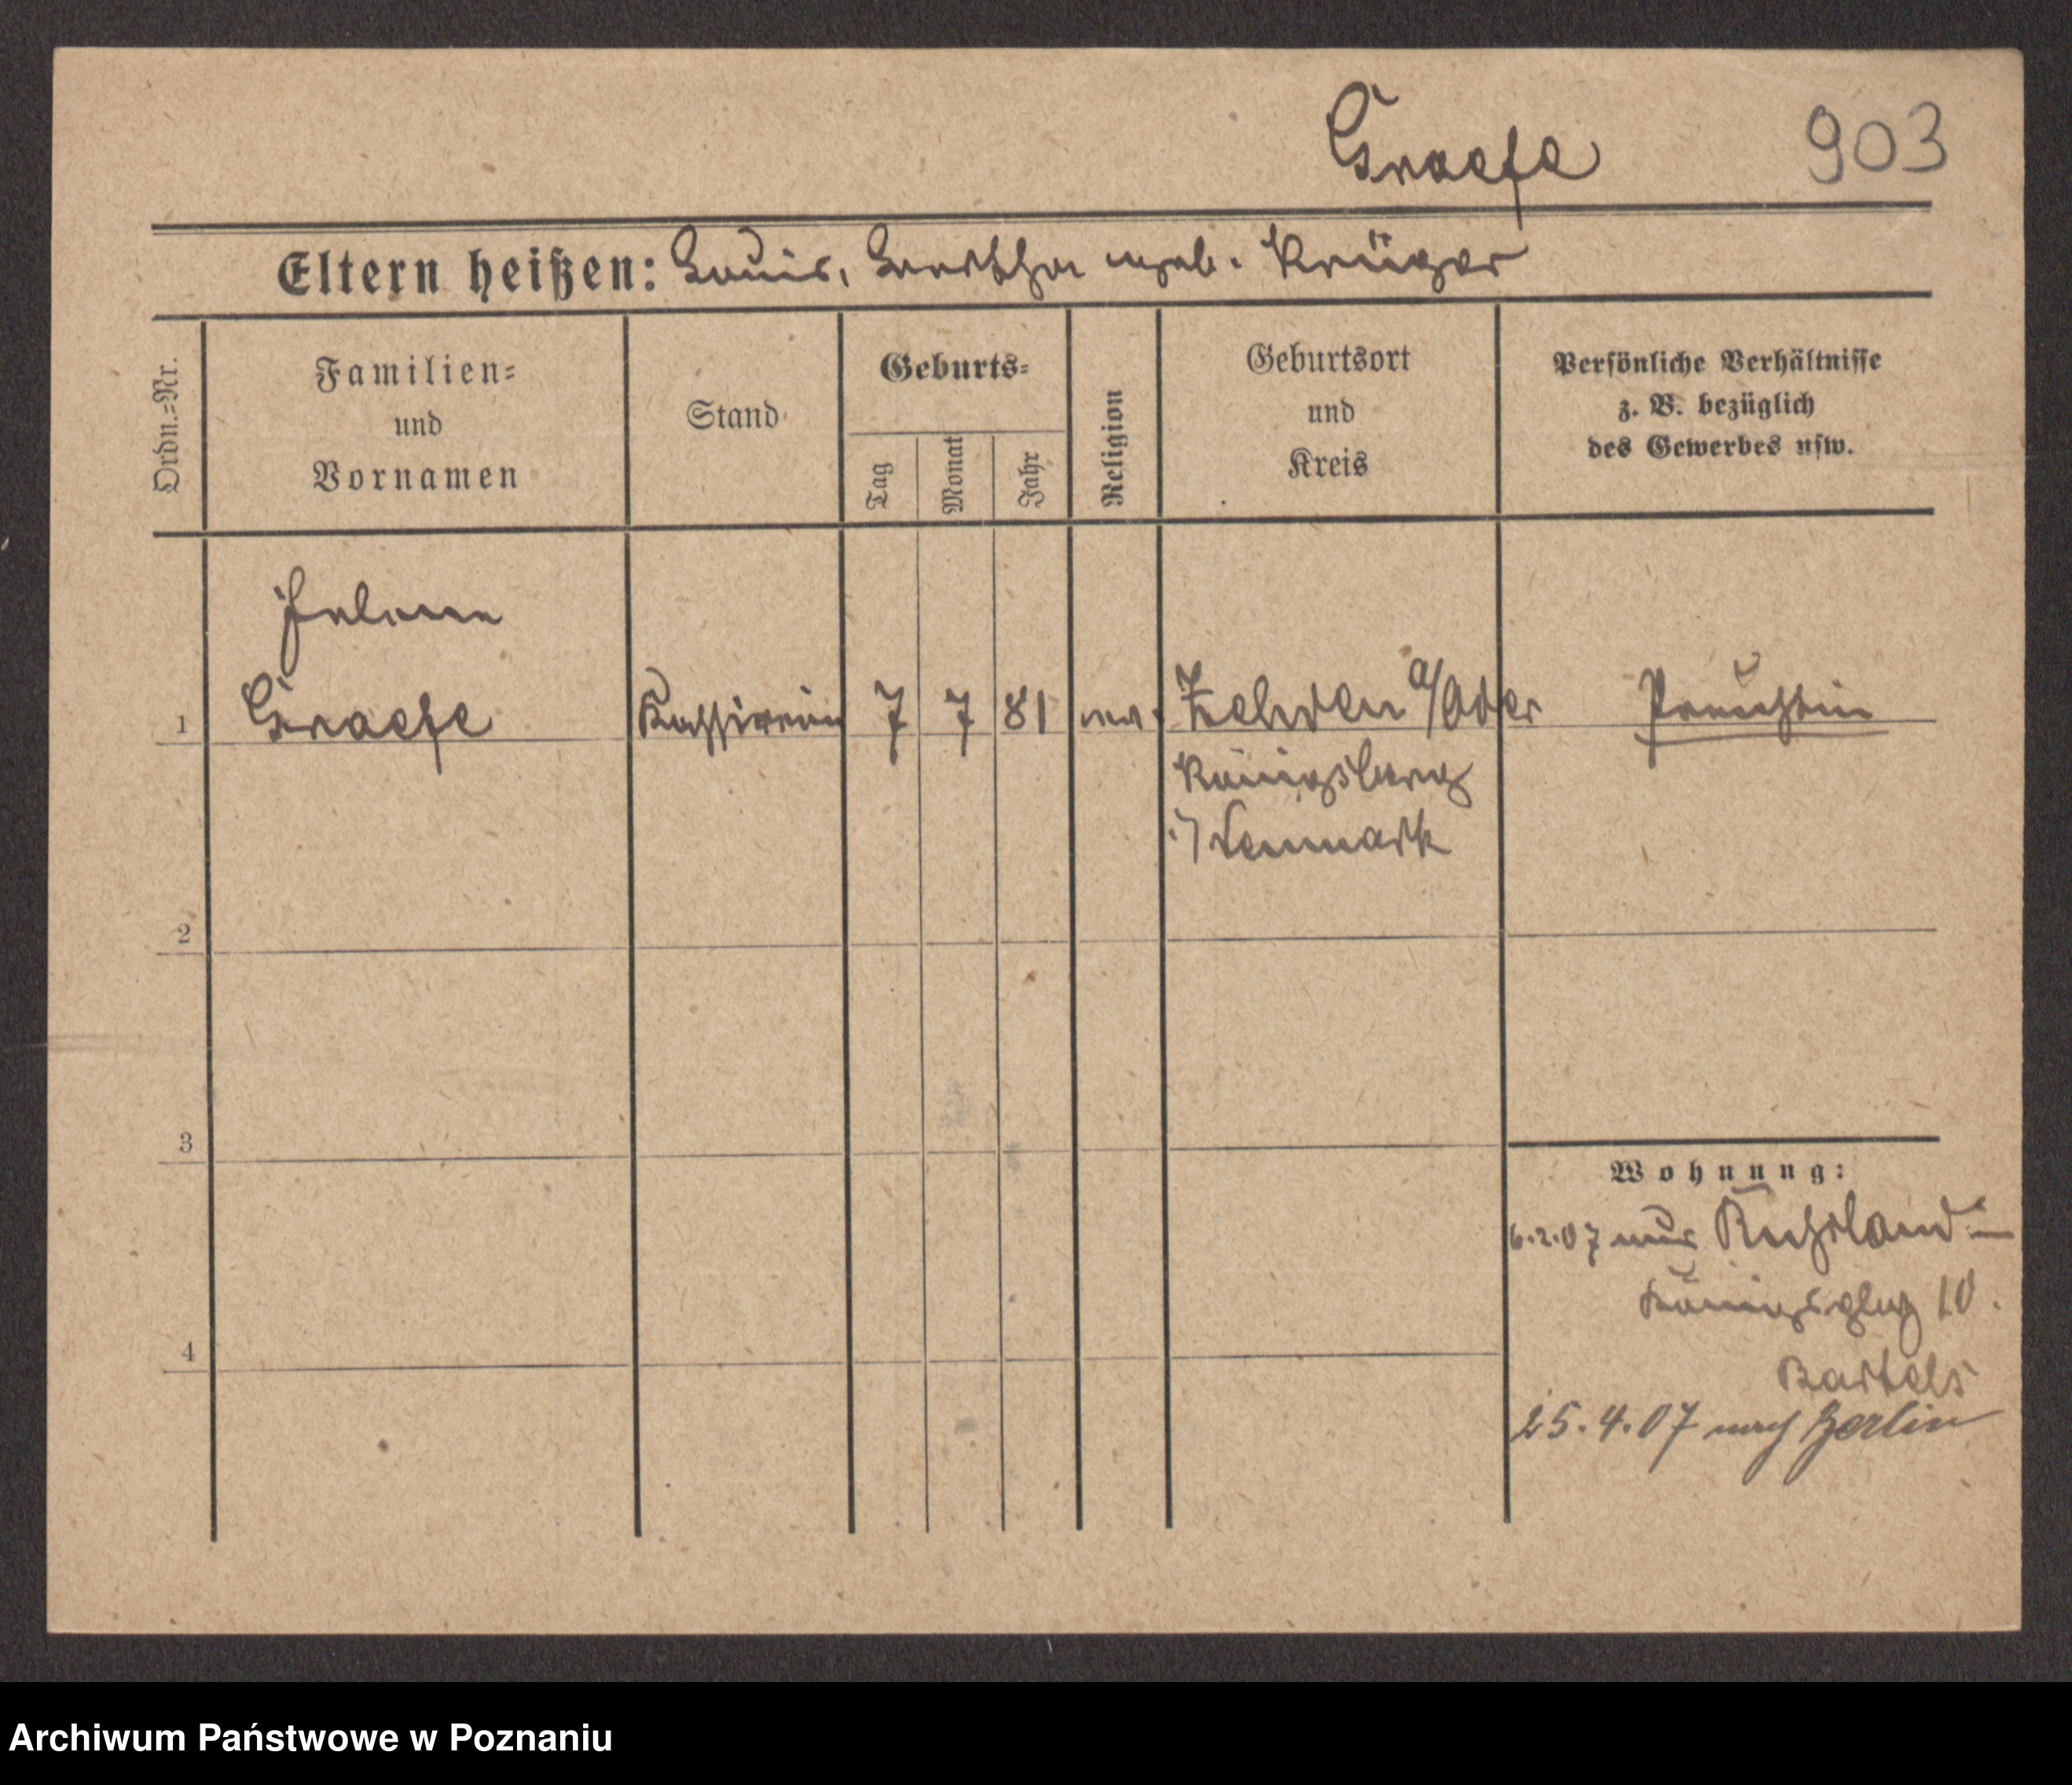 Graefe 903
Eltern heißen: Louis, Bertha geb. Krüger
Ordn.=Nr.
Familien=
und
Vornamen
Stand
Geburts=
Tag
Monat
Jahr
Religion
Geburtsort
und
Kreis
Persönliche Verhältnisse
z. B. bezüglich
des Gewerbes usw.
Helene
1 Graefe Kassirerin 7 7 81 ev. Zehden a/Oder Preußin
Königsberg
i/Neumark
2
3
Wohnung:
6.2.07 aus Russland
Königsplatz 10.
4
Bartels
25.4.07 nach Berlin
Archiwum Państwowe w Poznaniu